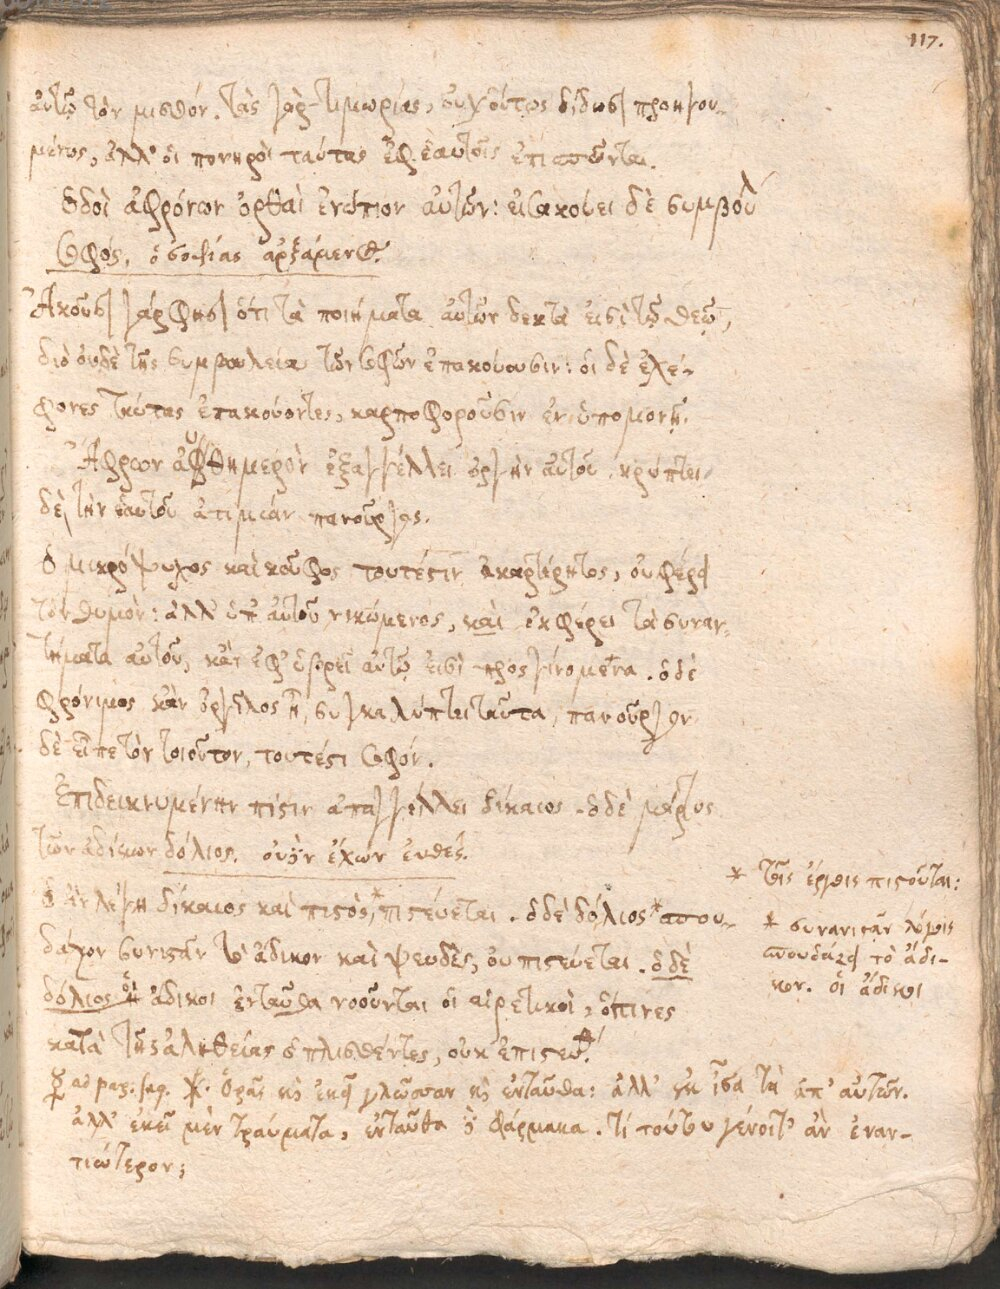 117.
αὐτῷ τὸν μισθόν. τὰς γὰρ τιμωρίας, οὐχ οὕτως δίδωσι προηγου-
μένως, ἀλλ' οἱ πονηροὶ ταύτας ἐφ' ἑαυτοῖς ἐπισπῶνται.
ὁδοὶ ἀφρόνων ὀρθαὶ ἐνώπιον αὐτῶν: εἰσακούει δὲ συμβουλ
σοφός, ὁ σοφίας ἀρξάμενος.
Ἀκούσει γὰρ φησὶ ὅτι τὰ ποιήματα αὐτῶν δεκτά εἰσὶ τῷ θεῷ,
διὸ οὐδὲ τῆς συμβουλεία τῶν σοφῶν ἐπακούουσιν: οἱ δὲ ἐχέ-
φρονες ταύτας ἐπακούοντες, καρποφοροῦσιν ἐν ὑπομονῇ.
Ἄφρων αὐθημερὸν ἐξαγγέλλει ὀργὴν αὐτοῦ. κρύπτει
δὲ τὴν ἑαυτοῦ ἀτιμίαν πανοῦργος.
ὁ μικρόψυχος καὶ κοῦφος τουτέστιν ἀκαρτέρητος, οὐ φέρει
τὸν θυμὸν: ἀλλ' ὑπ' αὐτοῦ νικώμενος, καὶ ἐκφέρει τὰ συναν-
τήματα αὐτοῦ, κἂν ἐφ' ὕβρει αὐτῷ εἰσὶ προσγινόμενα. ὁ δὲ
φρόνιμος κἂν ὀργίλος ᾖ, συγκαλύπτει ταῦτα, πανοῦργον
δὲ εἶπε τὸν τοιοῦτον, τουτέστι σοφόν.
Ἐπιδεικνυμένην πίστιν ἀπαγγέλλει δίκαιος. ὁ δὲ μάρτυς
τῶν ἀδίκων δόλιος. οὐσὸν ἐχών ευθες.
ὁ ἀνλέγη δίκαιος καὶ πιστὸς,* πιστεύεται. ὁ δὲ δόλιος * σπου-
δάζον συνιστᾶν τὸ ἄδικον καὶ ψευδὲς, οὐ πιστεύεται. ὁ δὲ
δόλιος ἢ οἱ ἄδικοι ἐνταῦθα νοοῦνται οἱ αἱρετικοὶ, οἵτινες
κατὰ τῆς ἀληθείας ὁπλισθέντες, οὐκ ἐπιστεύθ.
ad pag. seq. Ὁρᾷς κἀκεῖ γλῶσσαν κἀνταῦθα: ἀλλ' οὐκ ἶσα τὰ ἀπ' αὐτῶν.
ἀλλ' ἐκεῖ μὲν τραύματα, ἐνταῦθα δὲ φάρμακα. τί τούτου γένοιτ' ἂν ἐναν-
τιώτερον;
* τοῖς ἔργοις πιστοῦται:
* συνανιστᾶν λόγοις
σπουδάζει τὸ ἄδι-
κον. οἱ ἄδικοι